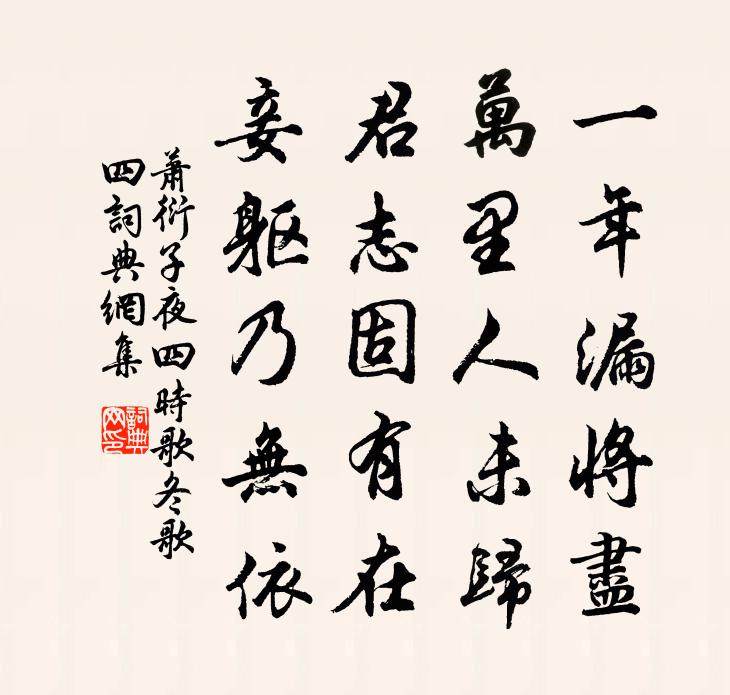 一年漏將盡
萬里人未歸
君志固有在
妾軀乃無依
蕭衍子夜四時歌冬歌
四詞典網集
詞典网印